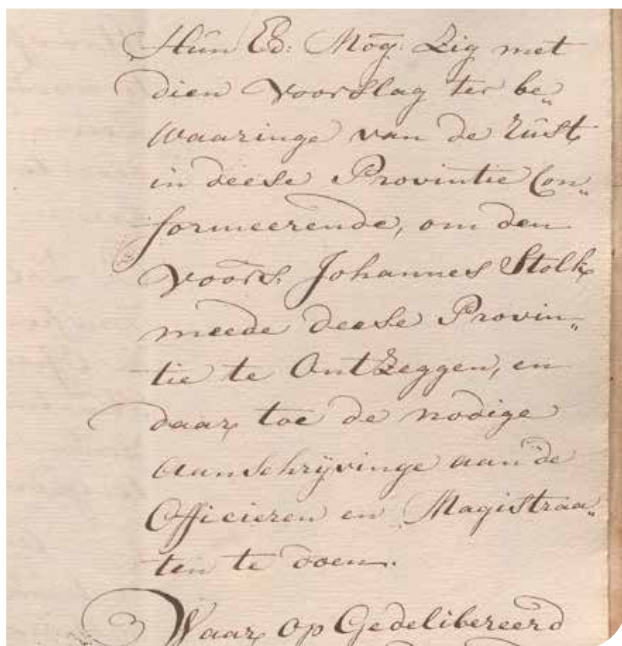 Hun Ed: Mog: Zig met
dien Voorslag ter be„
waaringe van de Rust
in deese Provintie Con„
formeerende, om den
Voors. Johannes Stolk
meede deese Provin„
tie te Ontzeggen, en
daar toe de nodige
Aanschrijvinge aan de
Officieren en Magistraa„
ten te doen.
Waar op Gedelibereerd